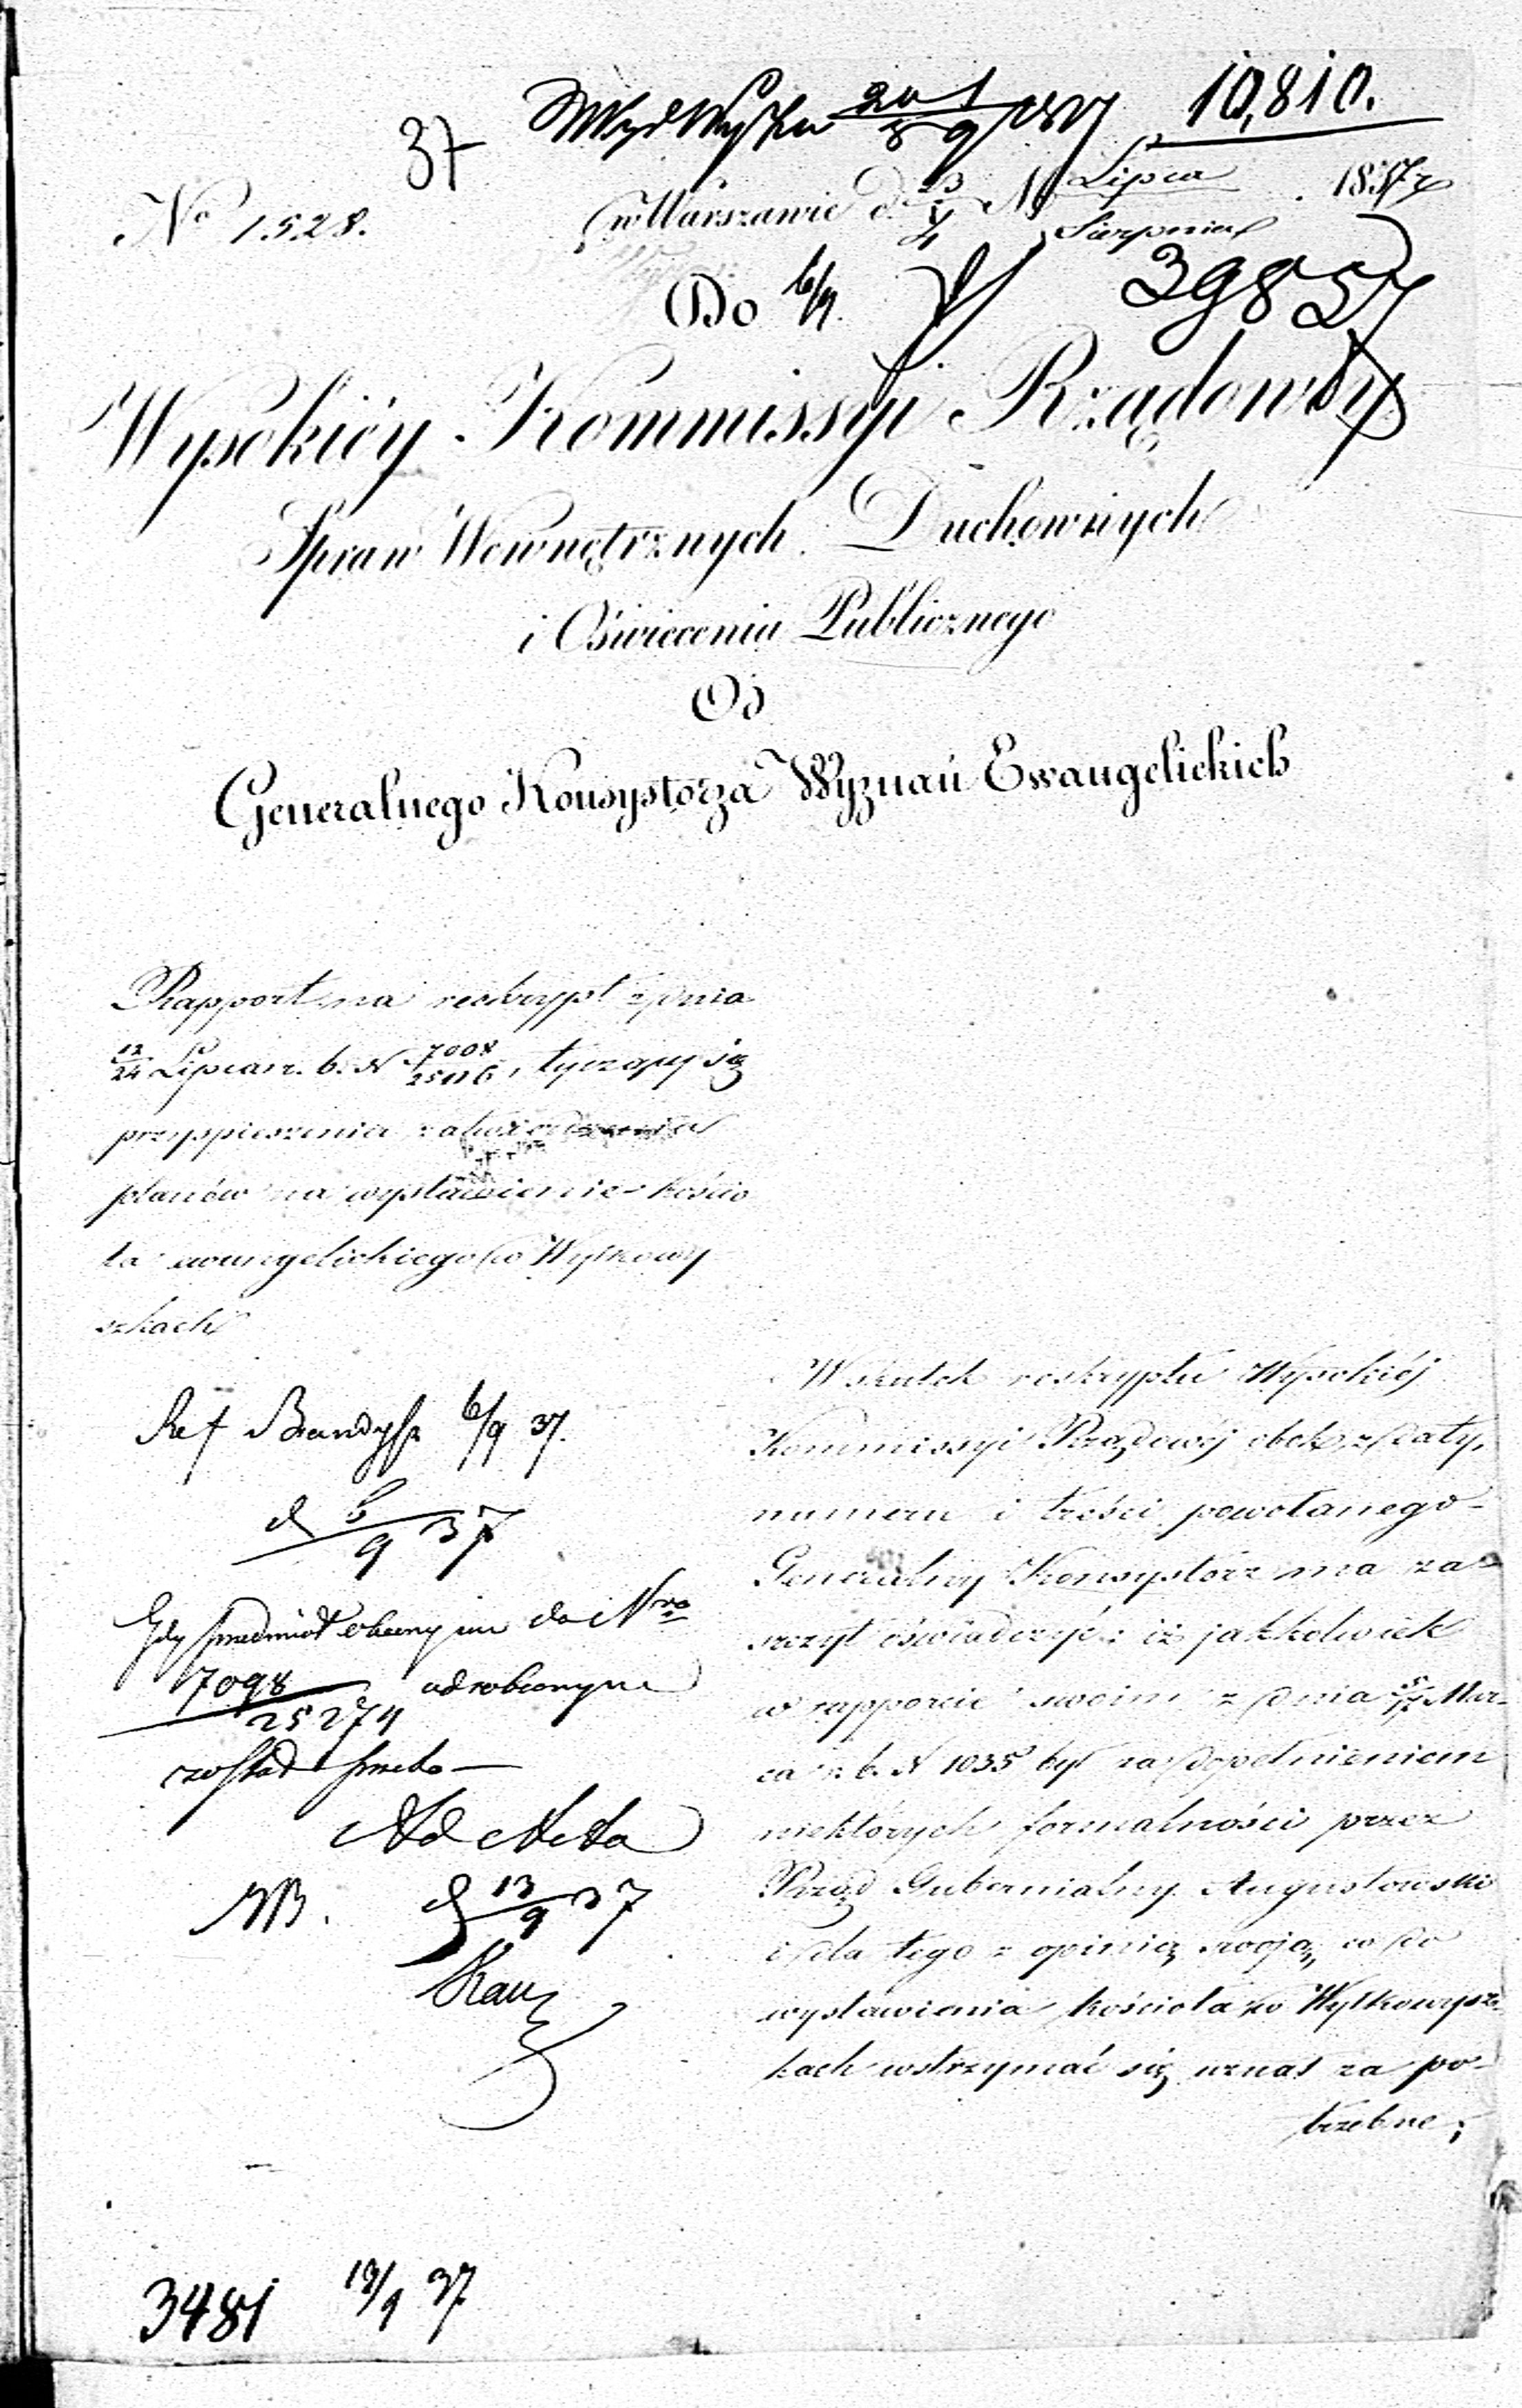 37
10,810.
No 1528.
w Warszawie d. 23/4 Lipca/Sierpnia 1837 r
Do 6/9.
39857
Wysokiéy Kommissyi Rządowéy
Spraw Wewnętrznych Duchownych
i Oświecenia Publicznego
Od
Generalnego Konsystorza Wyznań Ewangelickich
Rapport na reskrypt z dnia
12/24 Lipca r. b. N , tyczący się
przyspieszenia zatwierdzenia
planów na wystawienie kościo
ła ewangelickiego w Wyłkowy
szkach
Ref 6/9 37.
d 5/9 37
Gdy przedmiot obecny im do Nro
7098/25274 odrobionym
został przeto —
Ad Acta
NB. d 13/9 37
W skutek reskryptu Wysokiéj
Kommissyi Rządowéj obok z daty,
numeru i treści powołanego
Generalny Konsystorz ma za-
szczyt oświadczyć: iż jakkolwiek
w rapporcie swoim z dnia 5/17 Mar-
ca r. b. N 1035 był za dopełnieniem
niektórych formalności przez
Rząd Gubernialny Augustowski
i dla tego z opinią swoją co do
wystawienia kościoła w Wyłkowysz-
kach wstrzymać się uznał za po-
trzebne;
3481 13/9 37